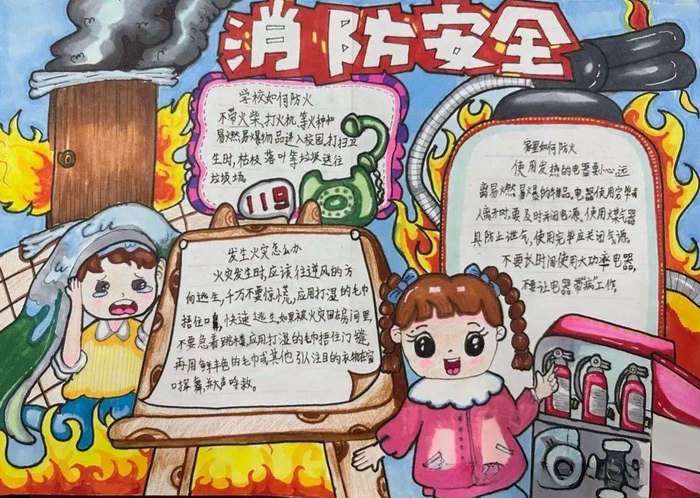 消防安全
学校如何防火
不带火柴、打火机等火种和
易燃易爆物品进入校园,打扫卫
生时,枯枝落叶等垃圾送往
垃圾场。
119
家里如何防火
使用发热的电器要小心,远
离易燃易爆的物品。电器使用完毕或
人离开时,要及时关闭电源,使用煤气器
具防止泄气,使用完毕应关闭气源。
不要长时间使用大功率电器,
不要让电器“带病”工作。
发生火灾怎么办
火灾发生时,应该往逆风的方
向逃生,千万不要惊慌,应用打湿的毛巾
捂住口鼻,快速逃生。如果被火灾困在房间里,
不要急着跳楼,应用打湿的毛巾捂住门缝,
再用鲜丰色的毛巾或其他引人注目的衣物在窗
口挥舞,并大声呼救。